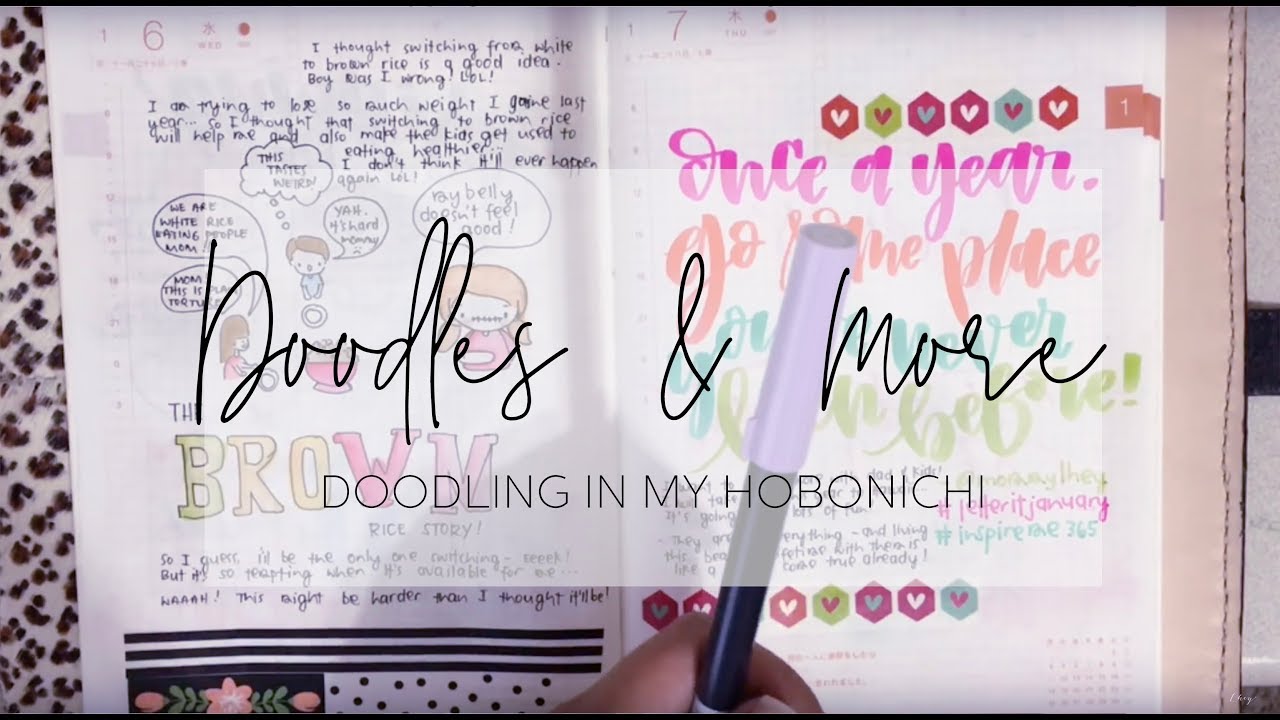 1 6 水
WED
I thought switching from white
to brown rice is a good idea.
Boy was I wrong! LOL!
I am trying to lose so much weight I gaine last
year... so I thought that switching to brown rice
will help me and also make the kids get used to
eating healthier...
I don't think it'll ever happen
again LOL!
THIS
TASTES
WEIRD!
WE ARE
WHITE RICE
EATING PEOPLE
MOM!
YAH.
it's hard
mommy
my belly
doesn't feel
good!
MOM
THIS IS
TORTURE
THE
BROWN
RICE STORY!
So I guess, i'll be the only one switching - eeeek!
But it's so tempting when it's available for me...
WAAAH! This might be harder than I thought it'll be!
1 7 木
THU
1
once a year.
go some place
you never
been before!
with dad & kids!
take
It's going lots of fun
They are everything - and living
this with them is
like a come true already!
#letteritjanuary
#inspireme365
Doodles & More
DOODLING IN MY HOBONICHI